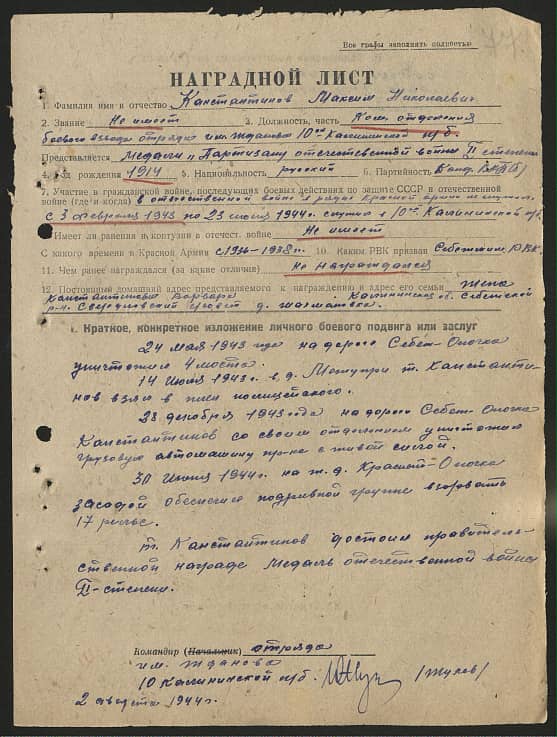 Все графы заполнять полностью
НАГРАДНОЙ ЛИСТ
1. Фамилия имя и отчество Канстантинов Максим Николаевич
2. Звание Не имеет 3. Должность, часть Ком. отделения
боевого взвода отряда им. Жданова 10ой Калининской п/б.
Представляется Медали "Партизану отечественной войны" II степени
4. рождения 1914 5. Национальность русский 6. Партийность Канд. ВКП(б)
7. Участие в гражданской войне, последующих боевых действиях по защите СССР и отечественной
войне (где и когда) в отечественной войне в рядах Красной армии не служил.
с 3 февраля 1943 по 23 июля 1944г. служил в 10ой Калининской п/б.
Имеет ли ранения и контузии в отечест. войне Не имеет
С какого времени в Красной Армии с 1936-1938г. 10. Каким РВК призван Себежским РВК.
11. Чем ранее награждался (за какие отличия) Не награждался
12. Постоянный домашний адрес представляемого к награждению и адрес его семьи жена
Канстантинова Варвара Калининская об. Себежский
р-н. д.
I. Краткое, конкретное изложение личного боевого подвига или заслуг
24 мая 1943 года на дороге Себеж-Опочка
уничтожил 4 моста.
14 Июля 1943г. в д. т. Канстанти-
нов взял в плен полицейского.
28 декабря 1943 года на дороге Себеж-Опочка
Канстантинов со своим отделением уничтожил
грузовую автомашину пр-ка с живой силой.
30 Июня 1944г. на ж.д. Красной-Опочка
засадой обеспечил подрывной группе взорвать
17 рельс.
т. Канстантинов достоин правитель-
ственной награде Медаль отечественной войны
II-степени.
Командир (Начальник) отряда
им. Жданова
10 Калининской п/б. /Жуков/
2 августа 1944г.